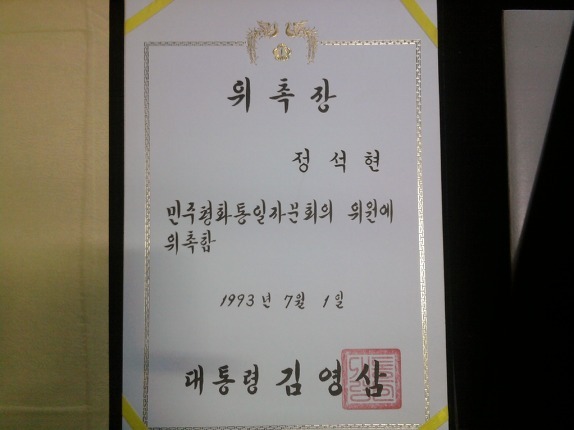 위촉장
정석현
민주평화통일자문회의 위원에
위촉함
1993년 7월 1일
대통령 김영삼